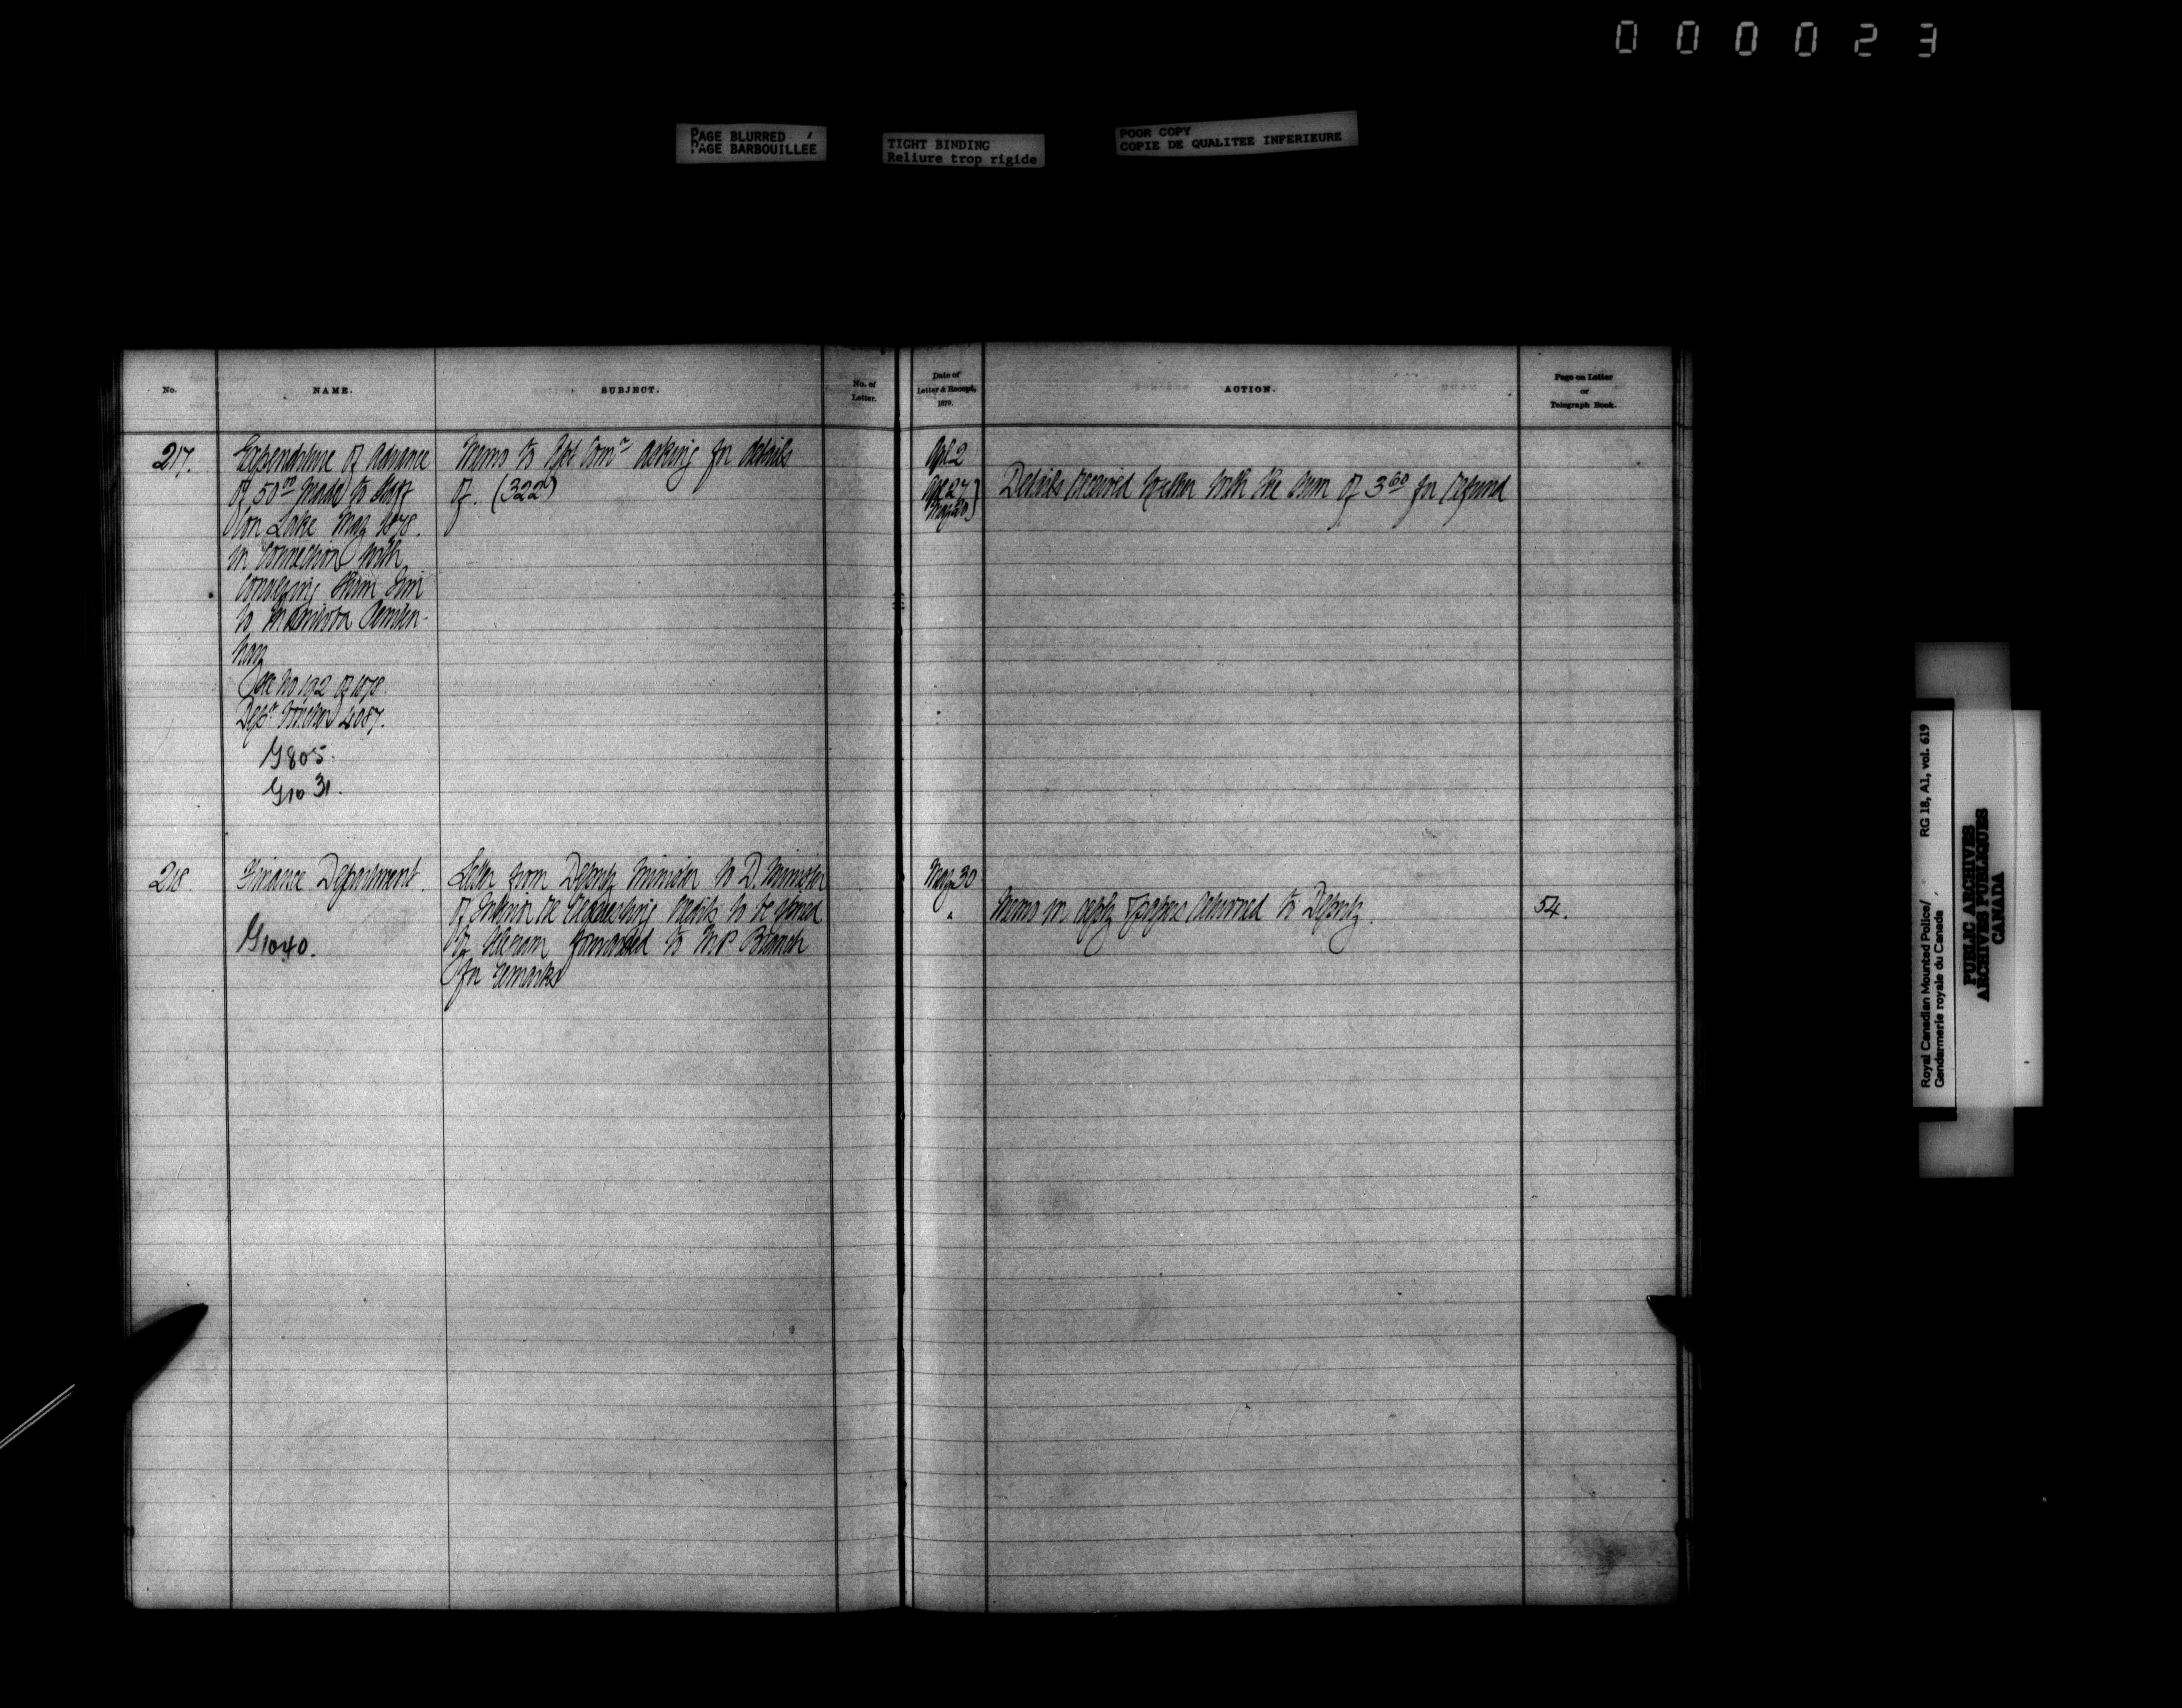 000023
PAGE BLURRED
PAGE BARBOUILLÉE
TIGHT BINDING
Reliure trop rigide
POOR COPY
COPIE DE QUALITEE INFERIEURE
No.
NAME.
SUBJECT.
No. of
Letter.
Date of
Letter & Receipt,
1879.
ACTION.
Page on Letter
or
Telegraph Book.
217.
Expenditure of advance
of 50⁰⁰ made to
Lake May 1878.
in connection with
conveying
to Manitoba Peniten-
tiary
See No 192 of 1878.
Dept Voucher 4087.
G805.
G1031.
Memo to Asst Comr asking for details
of. (322)
Apl 2
Details received together with the sum of 3⁶⁰ for refund
218.
Finance Department.
G1040.
Letter from Deputy Minister to D. Minister
of Interior re requesting credits to be opened
by forwarded to M.P Branch
for remarks
May 30
"
Memo in reply & papers returned to Deputy.
54.
Royal Canadian Mounted Police/
Gendarmerie royale du Canada
RG 18, A1, vol. 619
PUBLIC ARCHIVES
ARCHIVES PUBLIQUES
CANADA